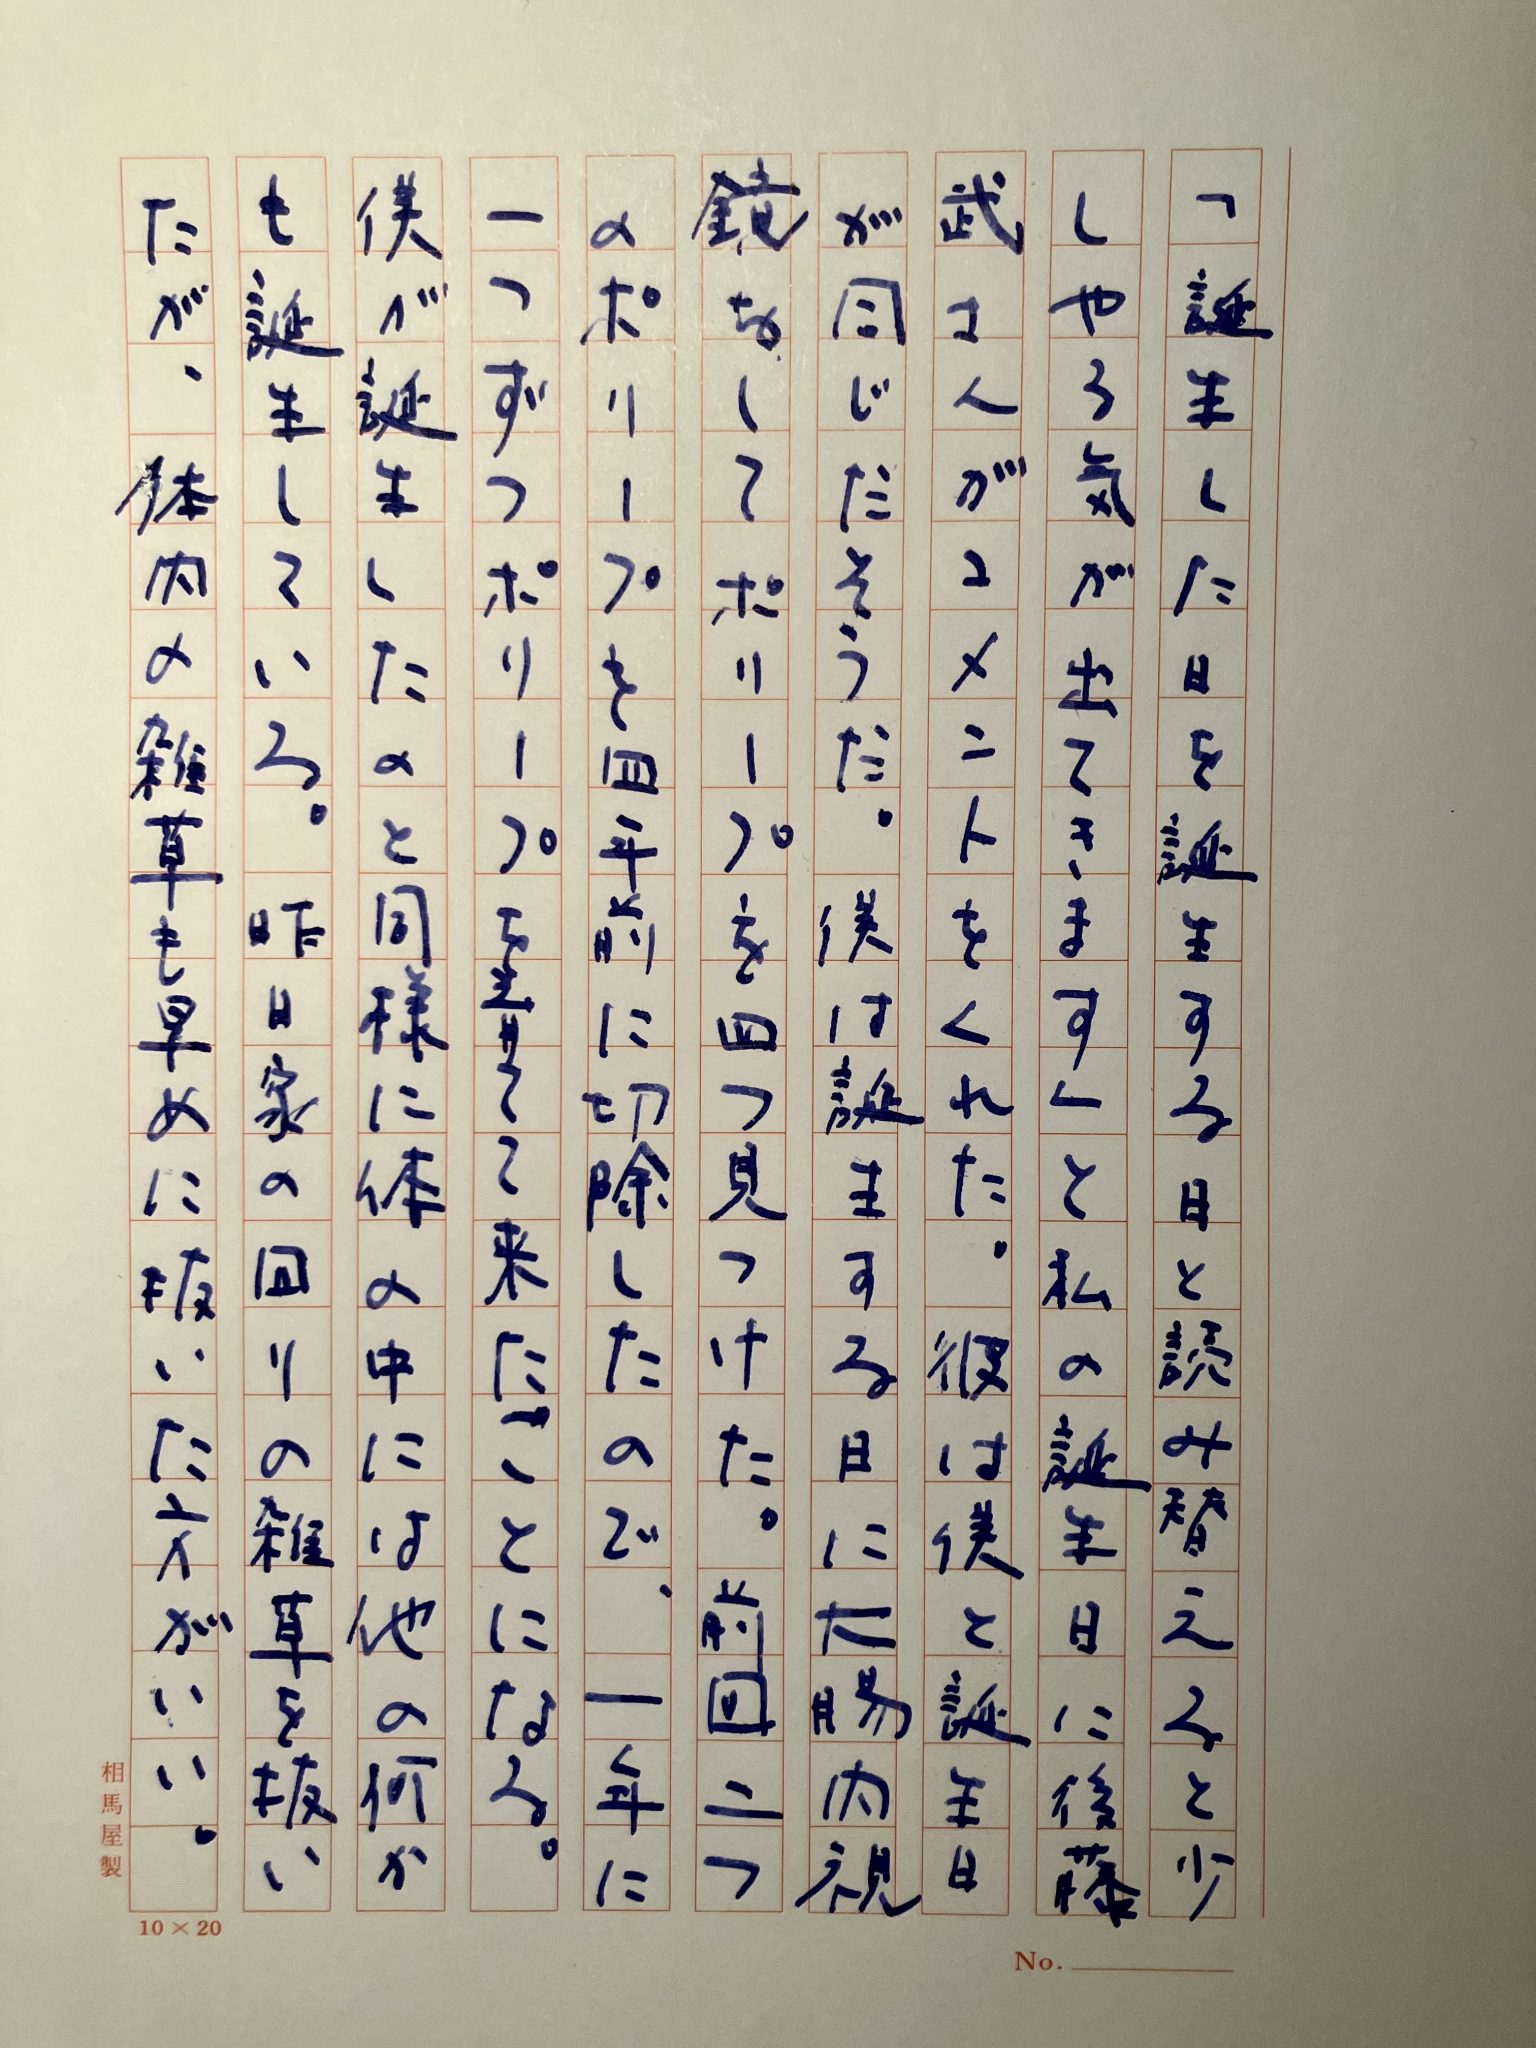 「誕生した日を誕生する日と読み替えると少
しやる気が出てきます」と私の誕生日に後藤
武さんがコメントをくれた。彼は僕と誕生日
が同じだそうだ。僕は誕生する日に大腸内視
鏡をしてポリープを四つ見つけた。前回二つ
のポリープを四年前に切除したので、一年に
一つずつポリープを着けて来たことになる。
僕が誕生したのと同様に体の中には他の何か
も誕生している。昨日家の回りの雑草を抜い
たが、体内の雑草も早めに抜いた方がいい。
相馬屋製
10×20
No.